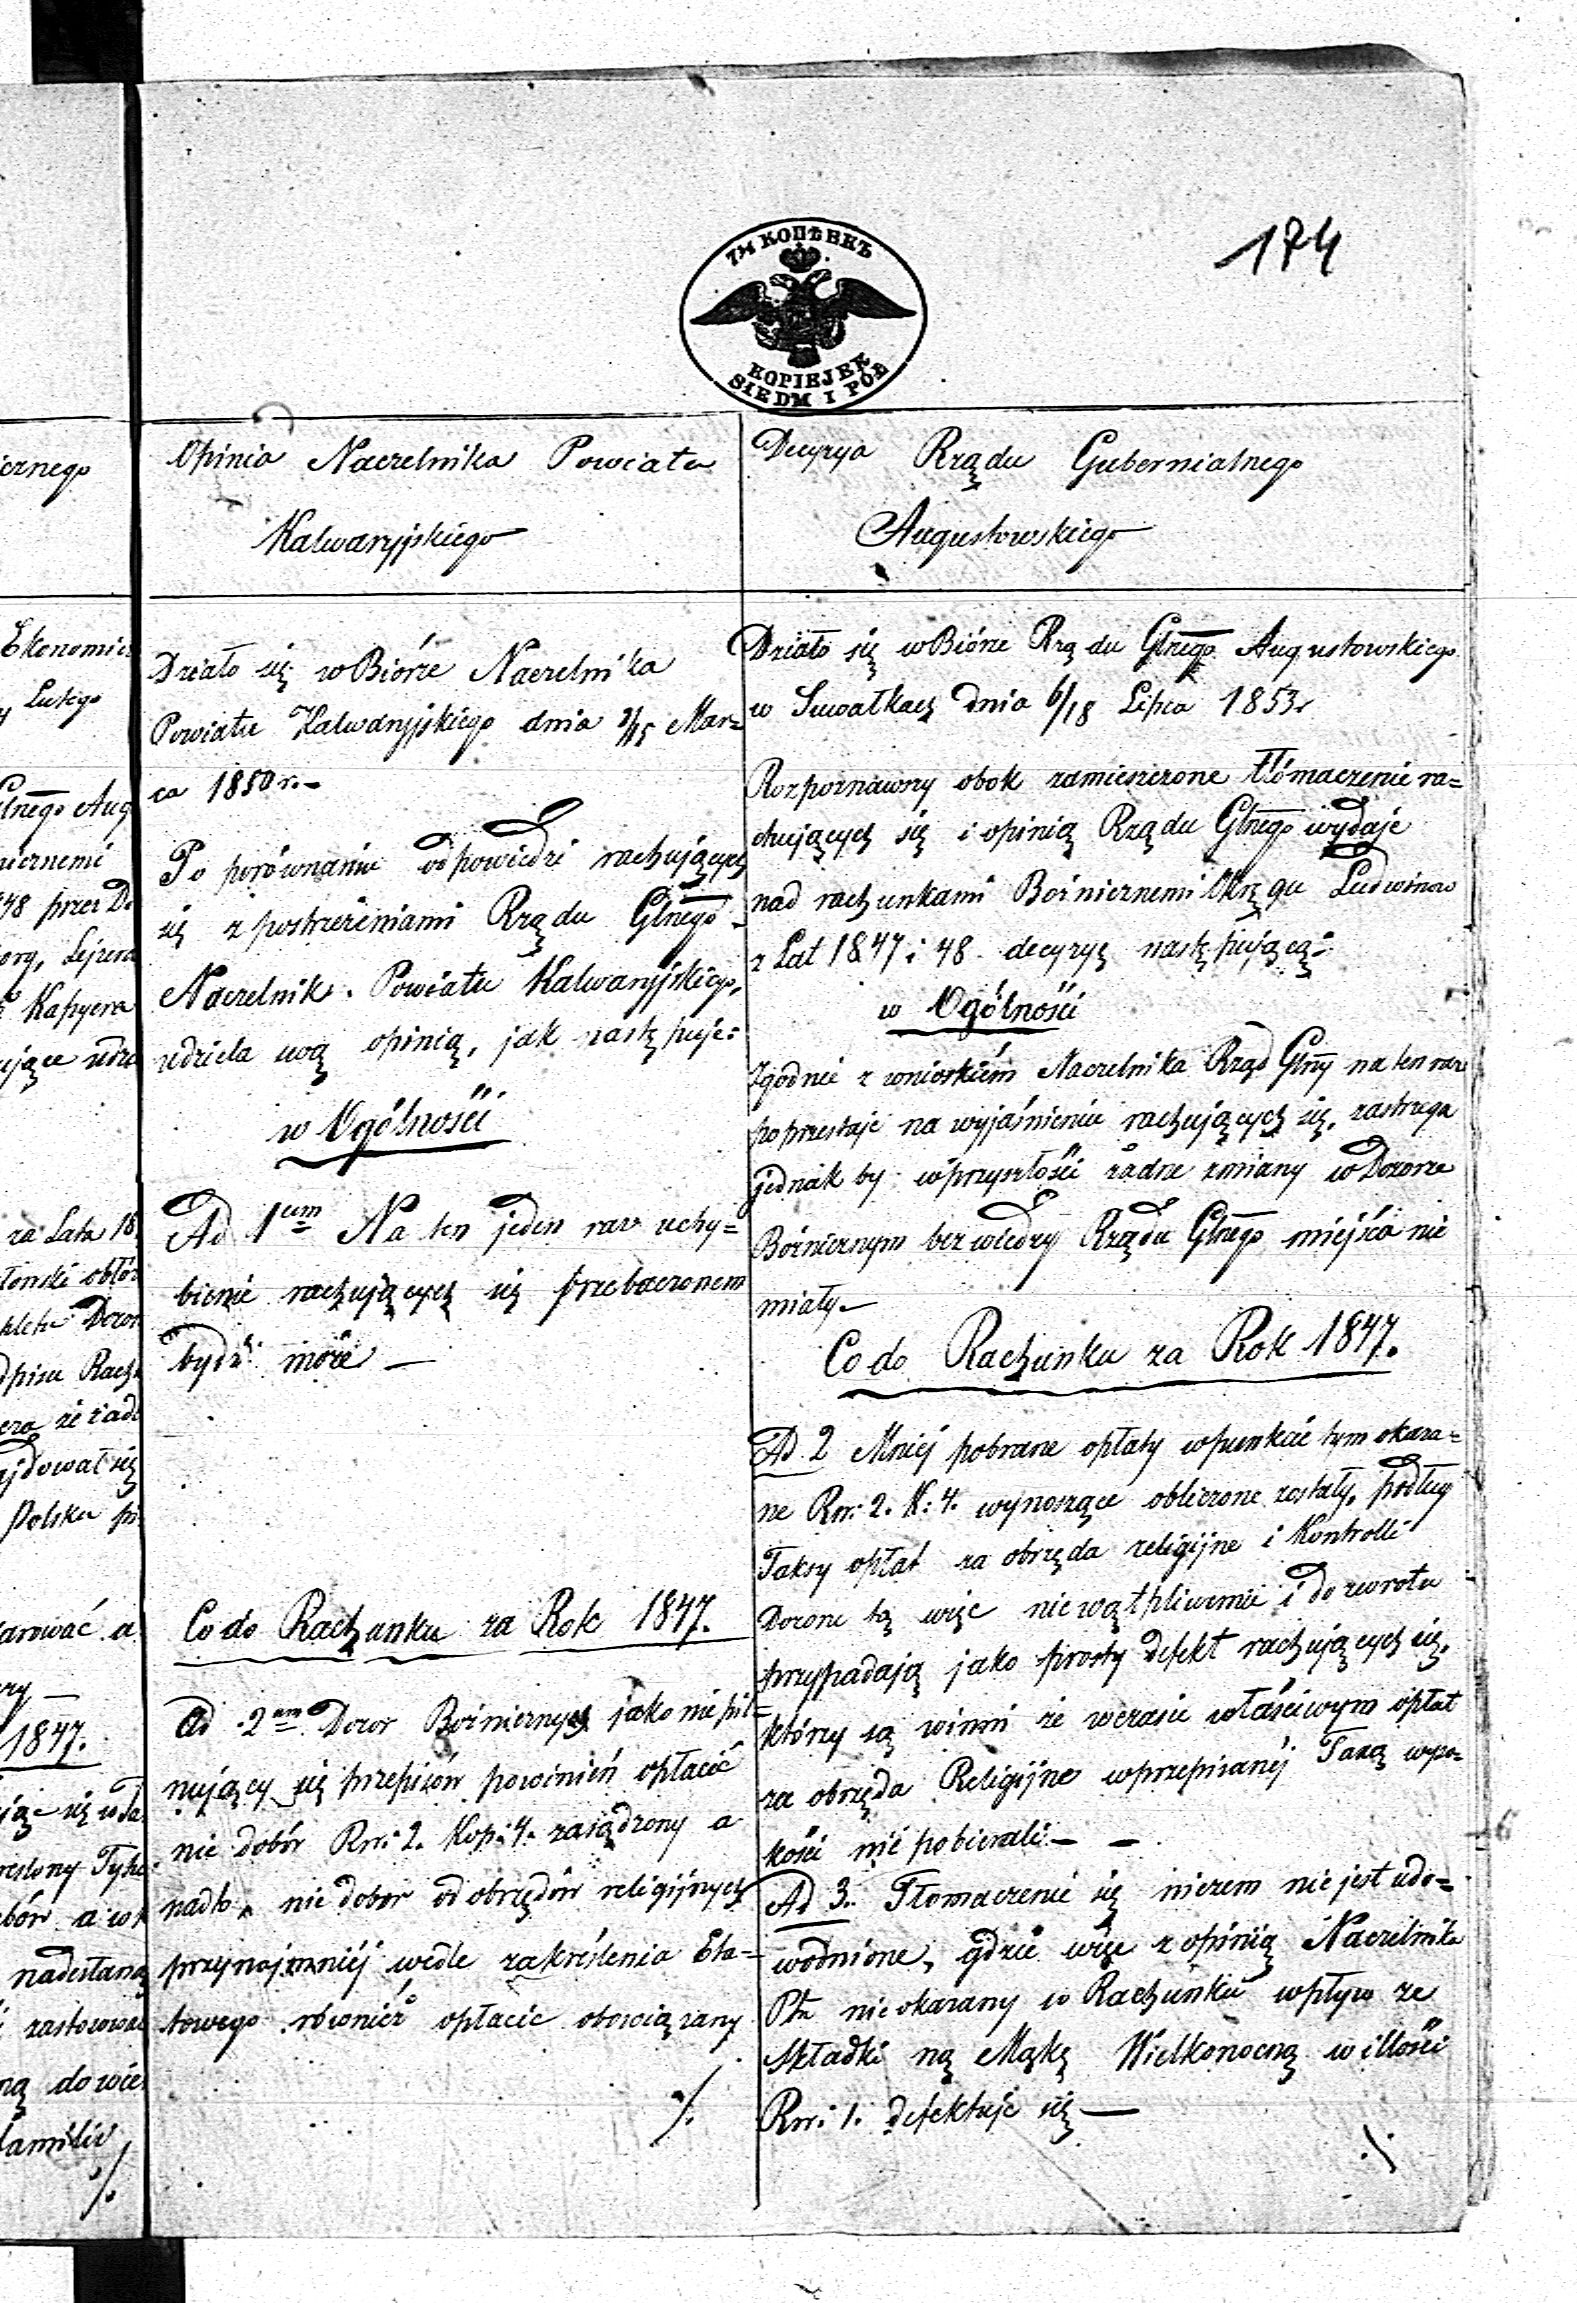 174
7½ КОПѢЕКЪ
KOPIEJEK
SIEDM I PÓŁ
Opinia Naczelnika Powiatu
Kalwaryjskiego
Działo się w Biórze Naczelnika
Powiatu Kalwaryjskiego dnia 3/15 Mar=
ca 1850 r. –
Po porównaniu odpowiedzi rachujących
się z postrzeżeniami Rządu Glnego
Naczelnik Powiatu Kalwaryjskiego,
udziela swą opinią, jak następuje:
w Ogólności
Ad 1um Na ten jeden raz uchy=
bienie rachujących się przebaczonem
bydź może —
Co do Rachunku za Rok 1847.
ad 2um Dozor Bożniczny jako nie pil=
nujący się przepisów powinień opłacić
nie dobór Rsr: 2. Kop: 4. zasądzony a
nadto nie dobor od obrzędów religijnych
przynajmniéj wedle zakreślenia Eta=
towego również opłacic obowiązany
./.
Decyzya Rządu Gubernialnego
Augustowskiego
Działo się w Biórze Rządu Glnego Augustowskiego
w Suwałkach dnia 6/18 Lipca 1853 r
Rozpoznawszy obok zamieszczone tłómaczenie ra=
chujących się i opinią Rządu Glnego wydaje
nad rachunkami Bożnicznemi Okręgu Ludwinow
z Lat 1847 i 48 decyzyę następującą:
w Ogólności
Zgodnie z wnioskiem Naczelnika Rząd Glny na ten raz
poprzestaje na wyjaśnieniu rachujących się, zastrzega
jednak by w przyszłości żadne zmiany w Dozorze
Bożnicznym bez wiedzy Rządu Glnego miejsca nie
miały. –
Co do Rachunku za Rok 1847.
Ad 2 Mniej pobrane opłaty w punkcie tym okaza=
ne Rsr: 2. K: 4. wynoszące obliczone zostały, podług
Taksy opłat za obrzęda religijne i Kontrolli
Dozoru są więc niewątpliwemi i do zwrotu
przypadają jako prosty defekt rachujących się,
którzy są winni że w czasie właściwym opłat
za obrzęda Religijne w przepisanéj Taxą wyso=
kości nie pobierali. – –
Ad 3. Tłomaczenie się niczem nie jest udo=
wodnione, gdzie więc z opinią Naczelnika
Ptu nie okazany w Rachunku wpływ ze
Składki na Mąkę Wielkanocną w illości
Rsr: 1. defektuje się —
./.